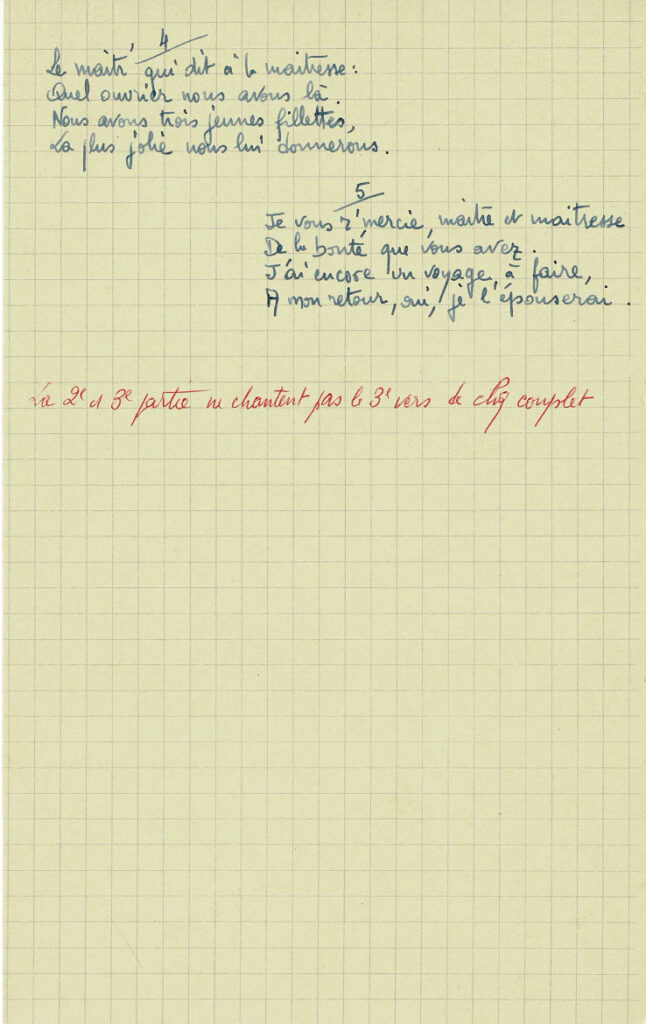 4
Le maitr' qui dit à la maitresse :
Quel ouvrier nous avons là.
Nous avons trois jeunes fillettes,
La plus jolie nous lui donnerons.
5
Je vous r'mercie, maitre et maitresse
De la bonté que vous avez.
J'ai encore un voyage à faire,
A mon retour, oui, je l'épouserai.
La 2e et 3e partie ne chantent pas le 3e vers de chq couplet